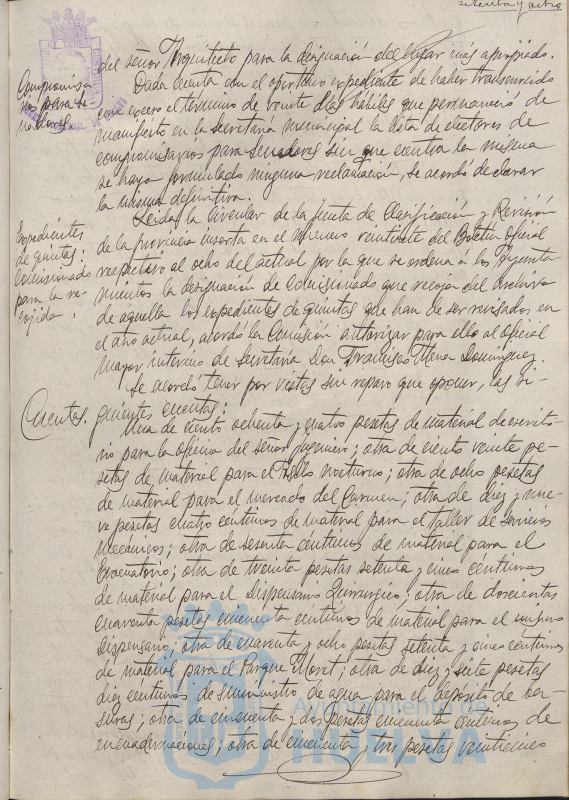 setenta y ocho
del señor Arquitecto para la designación del lugar más apropiado.
Compromisa
rios para Se
nadores
Dada cuenta con el oportuno expediente de haber transcurrido
con exceso el término de veinte días hábiles que permaneció de
manifiesto en la Secretaría municipal la lista de electores de
compromisarios para Senadores sin que contra la misma
se haya formulado ninguna reclamación, se acordó declarar
la misma definitiva.
Expedientes
de quintas:
Comisionado
para la re-
cojida.
Leída la Circular de la Junta de Clasificación y Revisión
de la provincia inserta en el número veintisiete del Boletín oficial
respectivo al ocho del actual por la que se ordena a los Ayunta
mientos la designación de comisionado que recoja del Archivo
de aquella los expedientes de quintas que han de ser revisados en
el año actual, acordó la Comisión autorizar para ello al oficial
mayor interino de Secretaría Don Francisco Mena Domínguez.
Se acordó tener por vistas sin reparo que oponer, las si-
Cuentas.
guientes cuentas:
Una de ciento ochenta y cuatro pesetas de material de escrito-
rio para la oficina del señor Ingeniero; otra de ciento veinte pe-
setas de material para el Asilo nocturno; otra de ocho pesetas
de material para el mercado del Carmen; otra de diez y nue-
ve pesetas cuatro céntimos de material para el taller de servicios
mecánicos; otra de sesenta céntimos de material para el
Evacuatorio; otra de treinta pesetas setenta y cinco céntimos
de material para el Dispensario Quirúrgico; otra de doscientas
cuarenta pesetas cincuenta céntimos de material para el mismo
Dispensario; otra de cuarenta y ocho pesetas setenta y cinco céntimos
de material para el Parque Moret; otra de diez y siete pesetas
diez céntimos de suministro de agua para el depósito de ba-
suras; otra de cincuenta y dos pesetas cincuenta céntimos de
encuadernaciones; otra de cincuenta y tres pesetas veinticinco
Ayuntamiento de
HUELVA